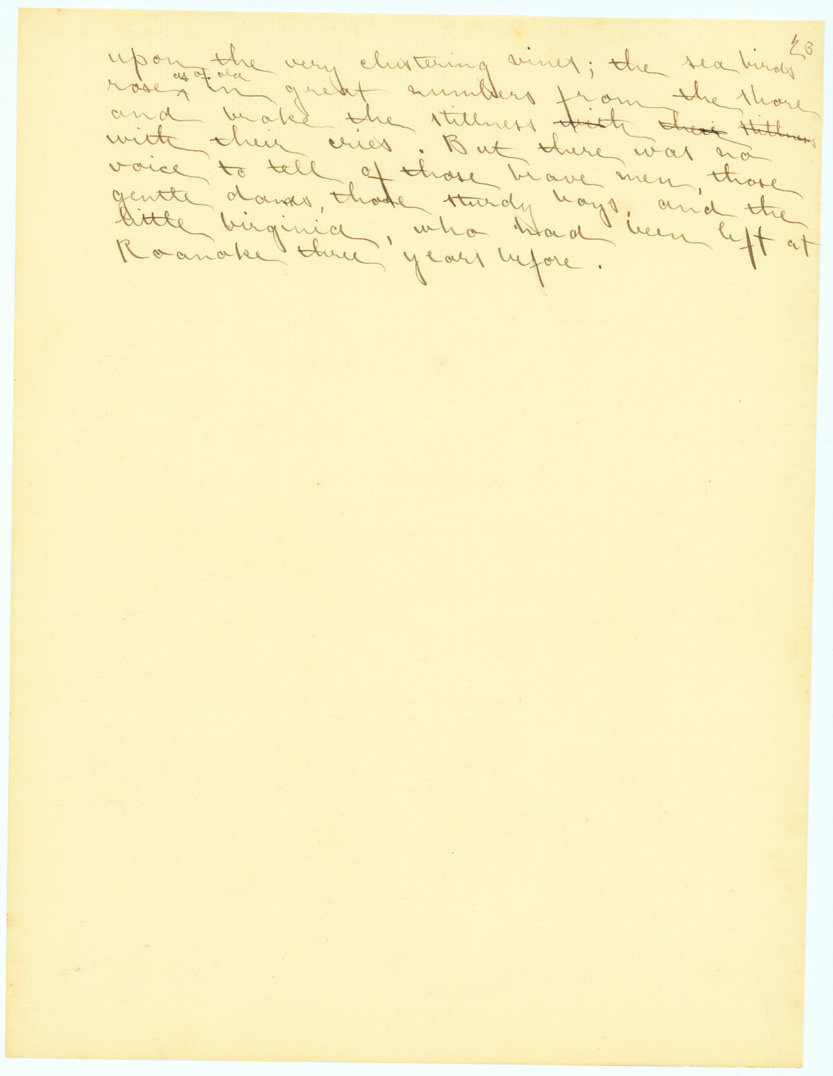 23
upon the very clustering vines; the sea birds
rose as of old in great numbers from the shore
and broke the stillness with their stillness
with their cries. But there was no
voice to tell of those brave men, those
gentle dames, those sturdy boys, and the
little Virginia, who had been left at
Roanoke three years before.